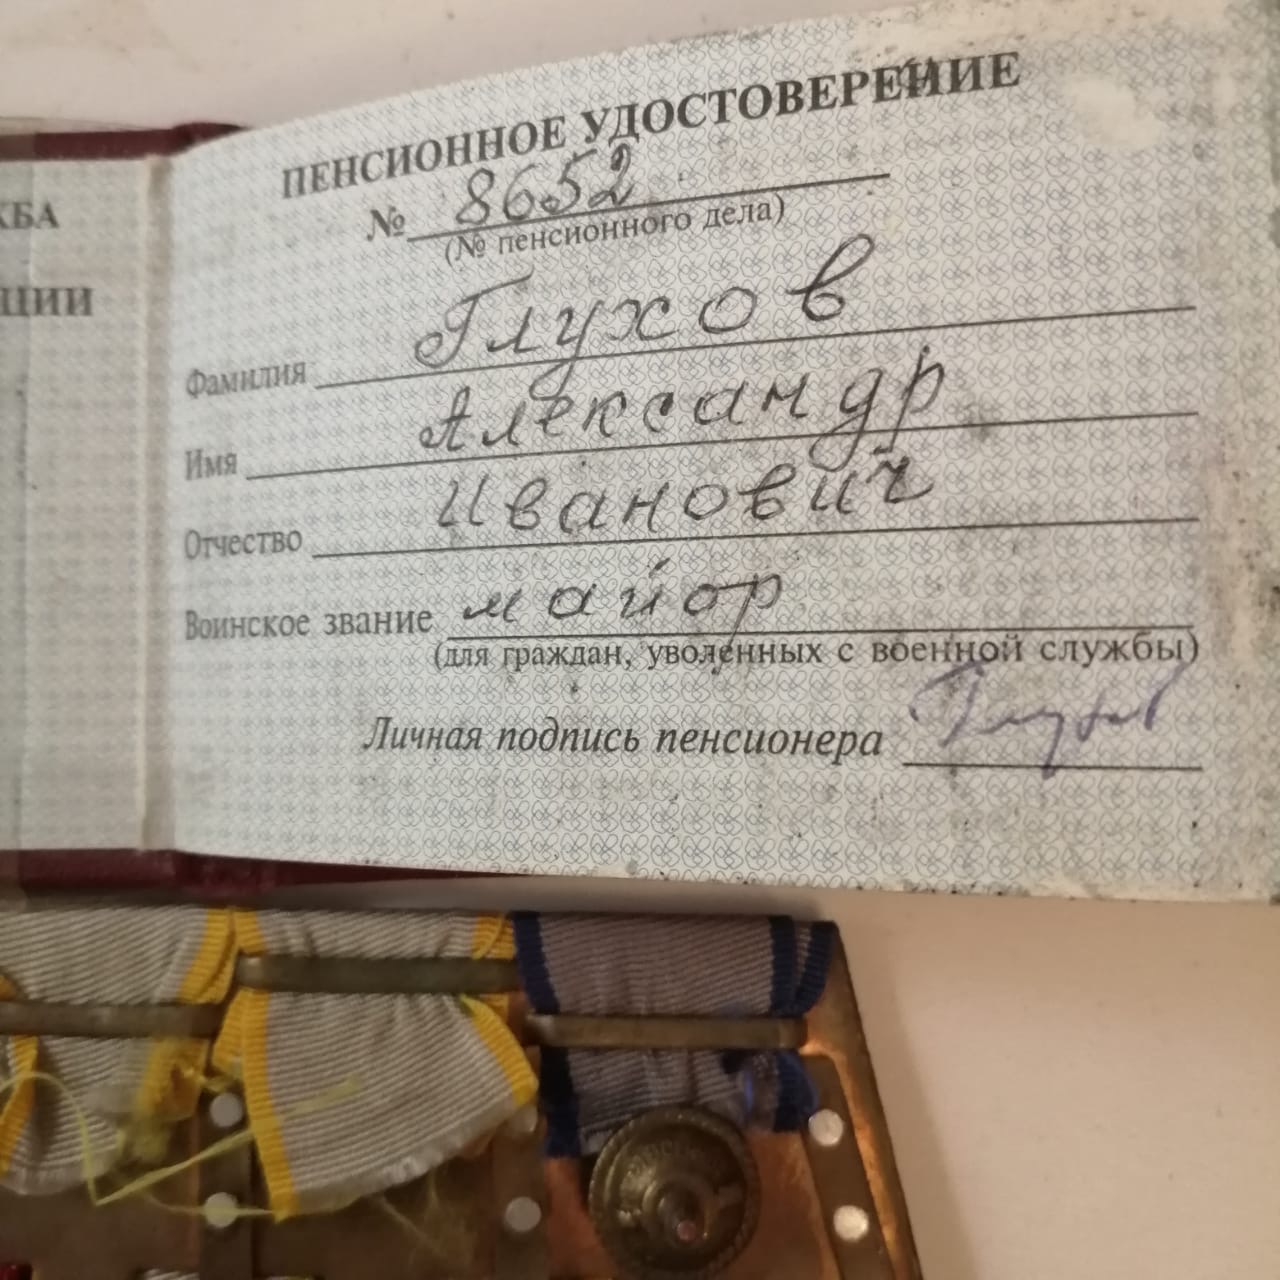 ЖБА
ЦИИ
ПЕНСИОННОЕ УДОСТОВЕРЕНИЕ
№ 8652
(№ пенсионного дела)
Фамилия Глухов
Имя Александр
Отчество Иванович
Воинское звание майор
(для граждан, уволенных с военной службы)
Личная подпись пенсионера Глухов